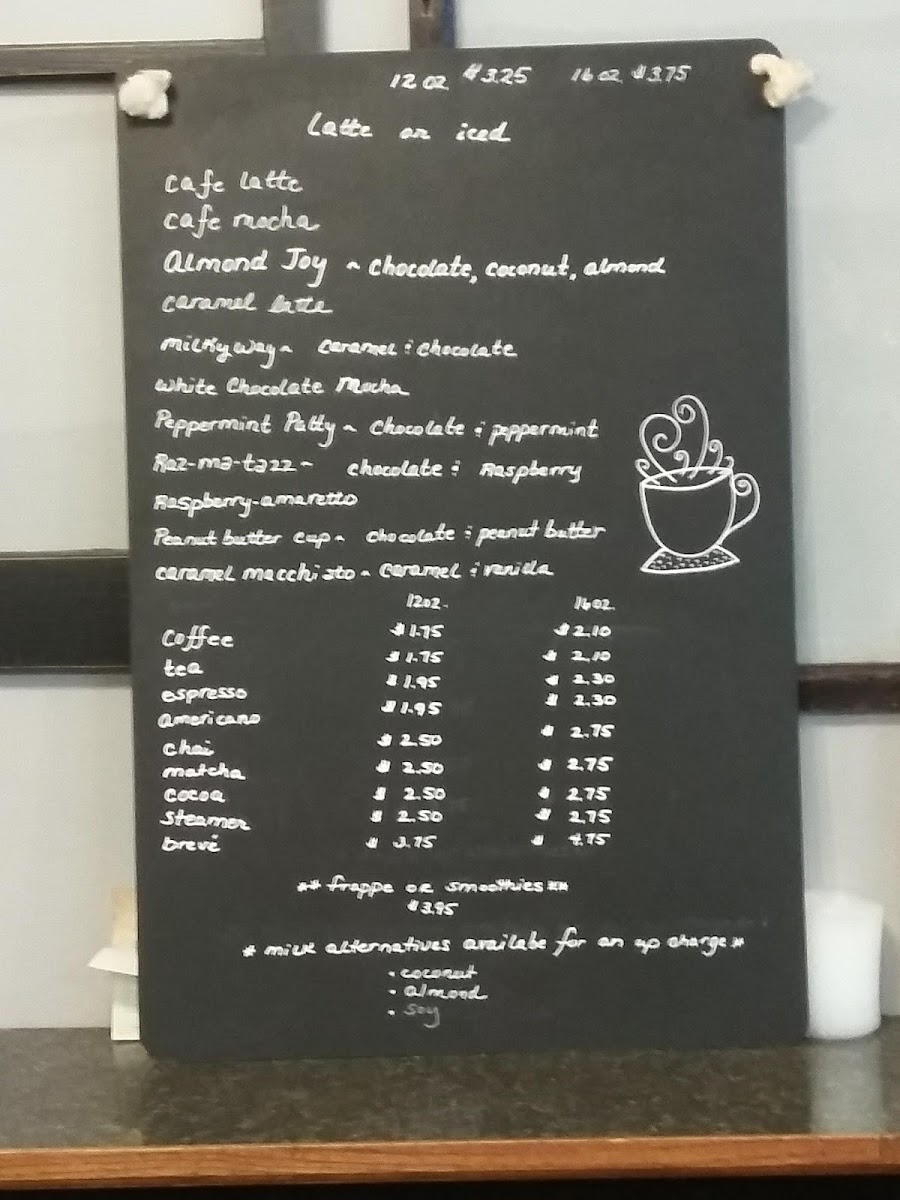 12 oz $3.25 16 oz $3.75
Latte or iced
cafe latte
cafe mocha
Almond Joy ~ chocolate, coconut, almond
caramel latte
milky way ~ caramel & chocolate
white chocolate mocha
Peppermint Patty ~ chocolate & peppermint
Raz-ma-tazz ~ chocolate & Raspberry
Raspberry-amaretto
Peanut butter cup ~ chocolate & peanut butter
caramel macchiato ~ caramel & vanilla
12oz. 16oz.
coffee $1.75 $2.10
tea $1.75 $2.10
espresso $1.95 $2.30
americano $1.95 $2.30
chai $2.50 $2.75
matcha $2.50 $2.75
cocoa $2.50 $2.75
steamer $2.50 $2.75
brevé $3.75 $4.75
** frappe or smoothies **
$3.95
* milk alternatives availabe for an up charge *
• coconut
• almond
• soy